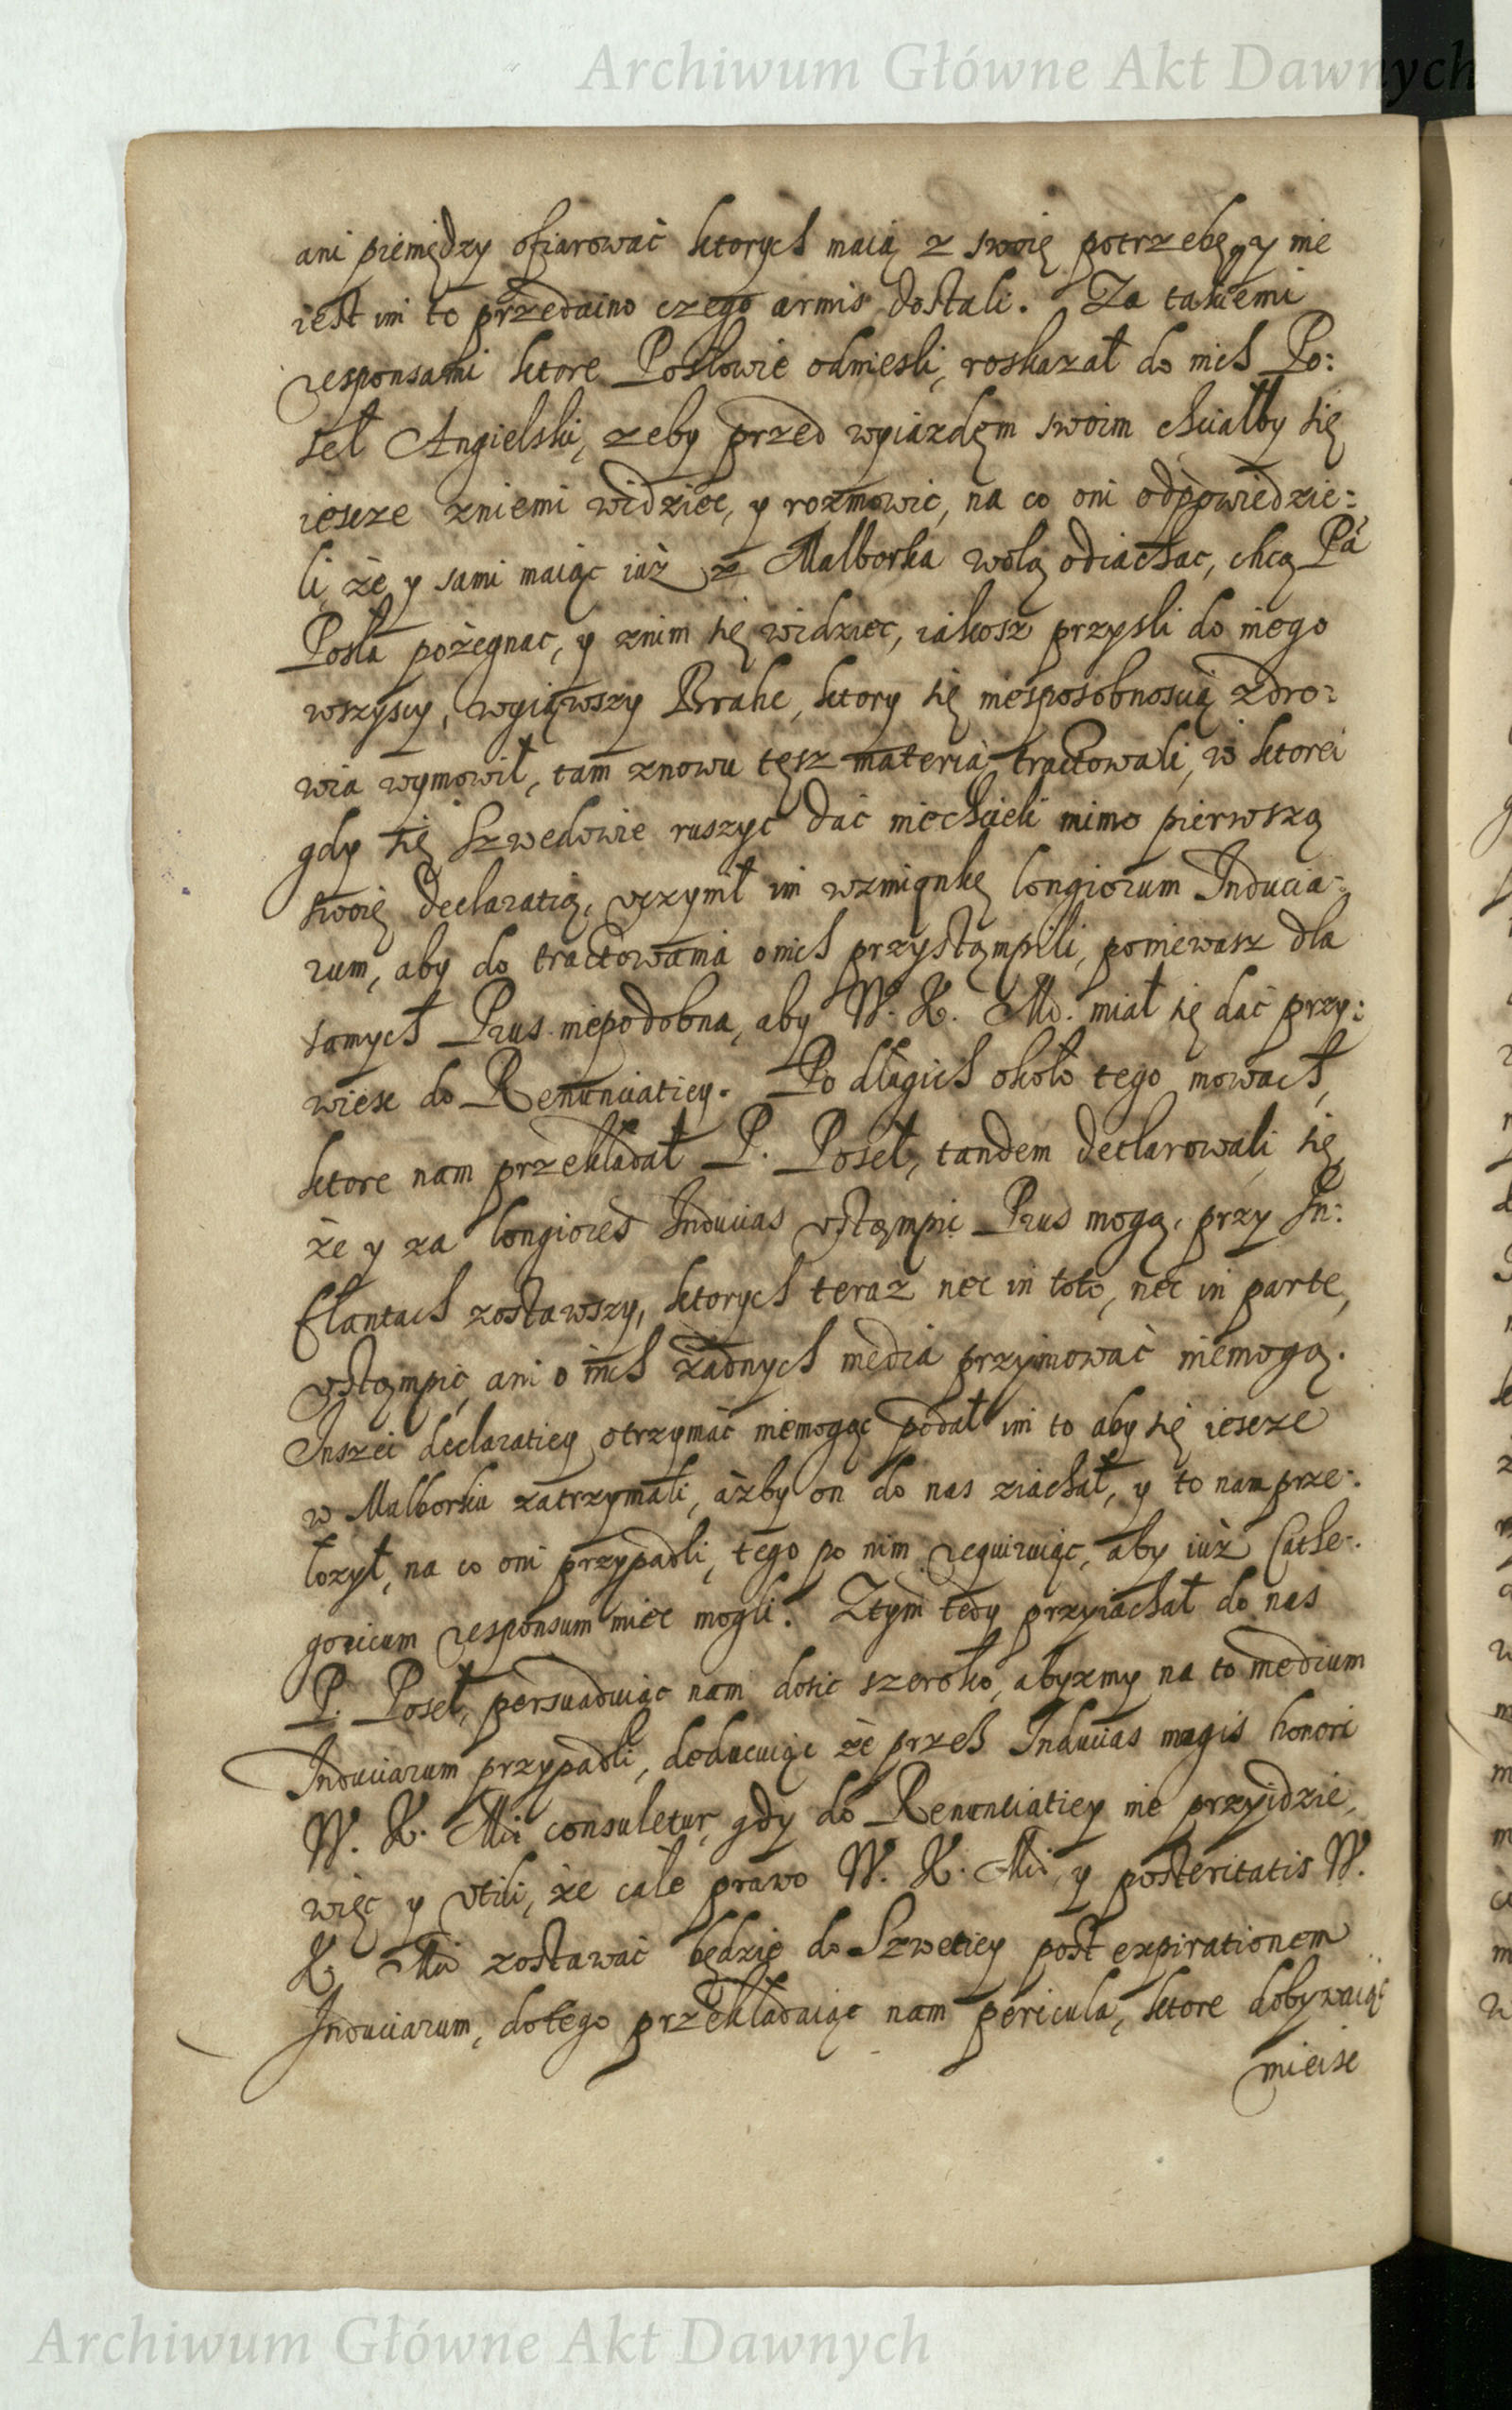 Archiwum Główne Akt Dawnych
ani pieniędzy ofiarować ktorych maią z swoię potrzebę, y nie
iest im to przedaino czego armis dostali. Za takiemi
responsami ktore Posłowie odniesli, roskazał do nich Po:
seł Angielski, zeby przed wyiazdęm swoim chciałby się
iescze zniemi widzięc, y rozmowic, na co oni odpowiedzie:
li, że y sami maiąc iuż z Malborka wolą odiachac, chcą Pa
Posła pożegnac, y znim się widziec, iakosz przysli do niego
wszyscy, wyiąwszy Brahe, ktory się niesposobnoscią zdro:
wia wymowił, tam znowu tęsz materią tractowali, w ktorei
gdy się Szwedowie ruszyc dać niechcieli mimo pierwszą
swoię declaratią, vczynił im wzmiąnkę longiorum Inducia:
rum, aby do tractowania onich przystąmpili, poniewasz dla
samych Prus niepodobna, aby W. K. Mć. miał się dać przy:
wiesc do Renunciatiey. Po długich około tego mowach,
ktore nam przekładał P. Poseł, tandem declarowali się,
że y za longiores Inducias vstąmpic Prus mogą, przy In:
flantach zostawszy, ktorych teraz nec in toto, nec in parte,
vstąmpic, ani o nich żadnych media przyimować niemogą.
Inszei declaratiey otrzymać niemogąc podał im to aby się iescze
w Malborku zatrzymali, ażby on do nas ziachał, y to nam prze:
łozył, na co oni przypadli, tego po nim requiruiąc, aby iuż Cathe:
goricum responsum miec mogli. Ztym tedy przyiachał do nas
P. Poseł, persuaduiąc nam dosic szeroko, abyzmy na to medium
Induciarum przypadli, deducuiąc że przes Inducias magis honori
W. K. Mci consuletur, gdy do Renunciatiey nie przyidzie,
więc y vtili, że całe prawo W. K. Mci y posteritatis W.
K. Mci zostawać będzie do Szwetiey post expirationem
Induciarum, dotego przekładaiąc nam pericula, ktore dobywaiąc
mieisc
Archiwum Główne Akt Dawnych